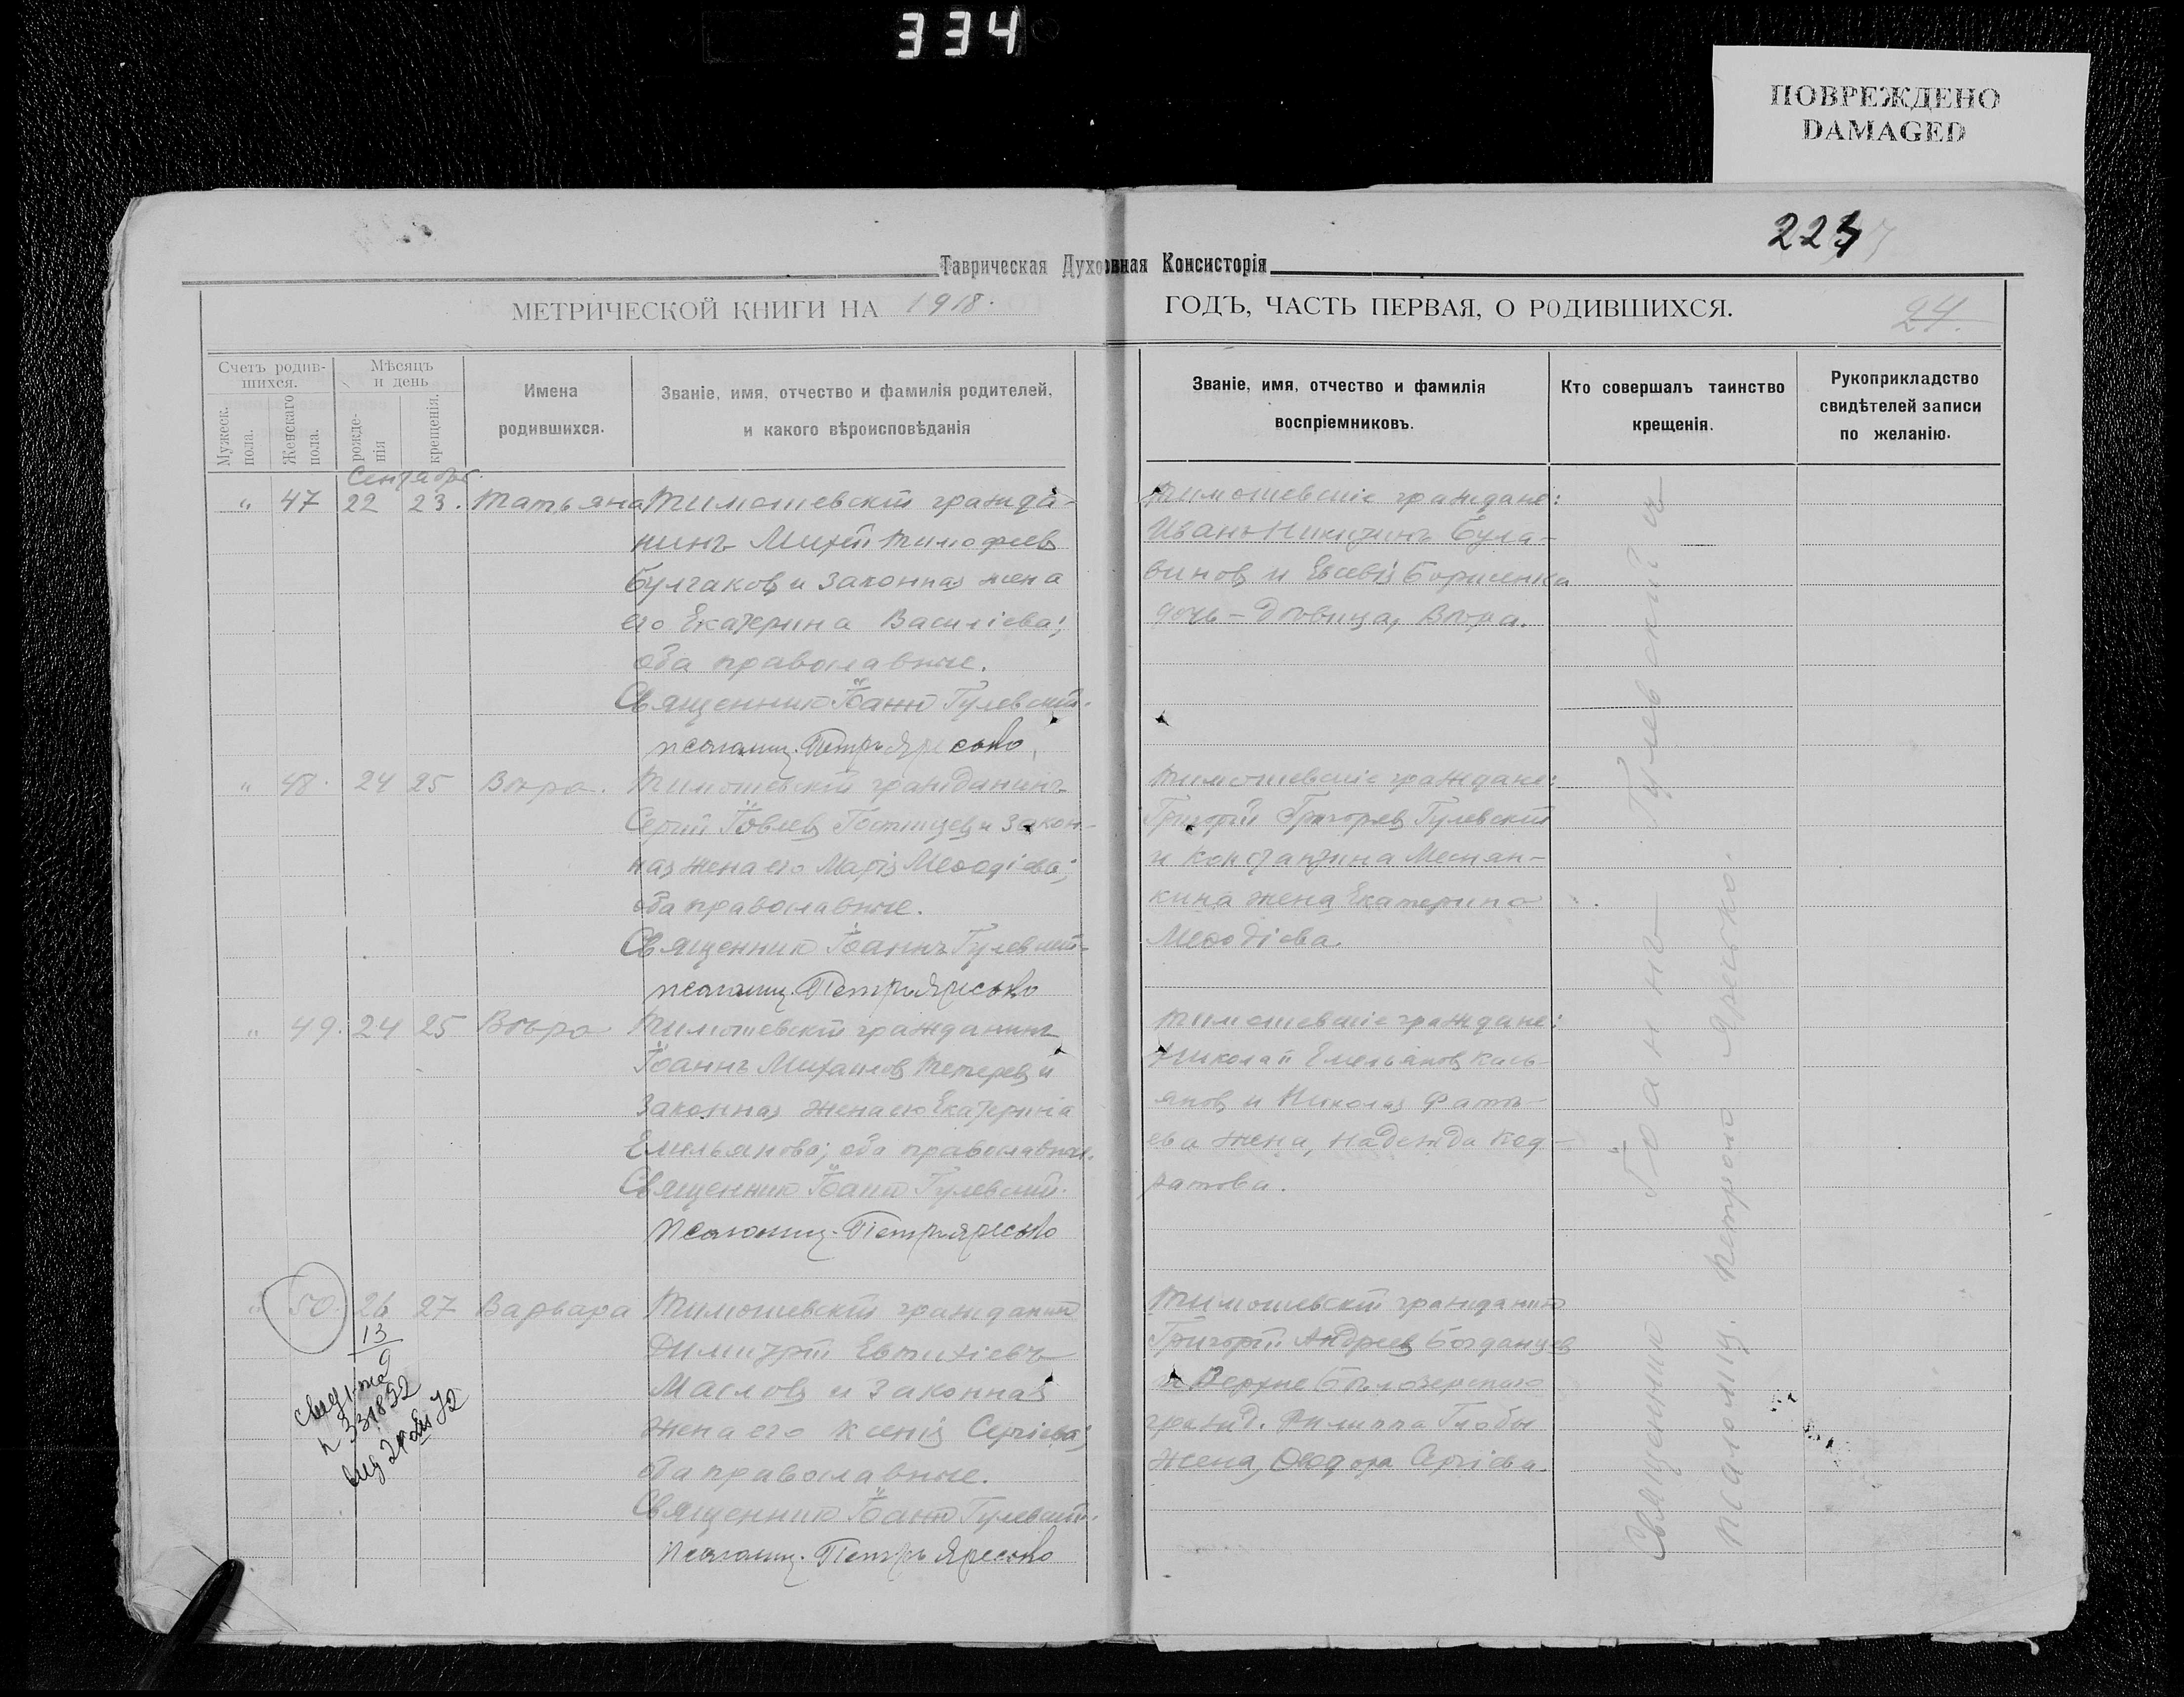 334
ПОВРЕЖДЕНО
DAMAGED
224
Таврическая Духовная Консисторія
МЕТРИЧЕСКОЙ КНИГИ НА 1918. ГОДЪ, ЧАСТЬ ПЕРВАЯ, О РОДИВШИХСЯ.
24.
Счетъ родив-
шихся.
Мужеск.
пола.
Женскаго
пола.
Мѣсяцъ
и день
рожде-
нія
крещенія.
Имена
родившихся.
Званіе, имя, отчество и фамилія родителей,
и какого вѣроисповѣданія
Званіе, имя, отчество и фамилія
воспріемниковъ.
Кто совершалъ таинство
крещенія.
Рукоприкладство
свидѣтелей записи
по желанію.
Сентябрь.
" 47 22 23. Татьяна
Тимошевскій гражда-
нинъ Михей Тимофеев
Булгаковъ и законная жена
его Екатерина Василіева;
оба православные.
Священникъ Іоаннъ Гулевскій.
псаломщ. Петръ Яресько
Тимошевскіе граждане:
Иванъ Никитинъ Була-
виновъ и Евсевія Борисенка
дочь - дѣвица, Вѣра.
" 48. 24 25 Вѣра.
Тимошевскій гражданинъ
Сергій Іовлевъ Гостищевъ и закон-
ная жена его Марія Меѳодіева;
оба православные.
Священникъ Іоаннъ Гулевскій.
псаломщ. Петръ Яресько
Тимошевскіе граждане:
Григорій Григорьевъ Гулевскій
и Константина Месян-
кина жена Екатерина
Меѳодіева.
" 49. 24 25 Вѣра
Тимошевскій гражданинъ
Іоаннъ Михаиловъ Тетеревъ и
законная жена его Екатерина
Емельянова; оба православные.
Священникъ Іоаннъ Гулевскій.
Псаломщ. Петръ Яресько
Тимошевскіе граждане:
Николай Емельяновъ Кась-
яновъ и Николая Фатѣ-
ева жена, Надежда Код-
ратова.
" 50. 26 27 Варвара
13
9
Тимошевскій гражданинъ
Димитрій Евтихіевъ
Масловъ и законная
жена его Ксенія Сергіева;
оба православные.
Священникъ Іоаннъ Гулевскій.
Псаломщ. Петръ Яресько
Тимошевскій гражданинъ
Григорій Андреевъ Богданцев
и Верхне Бѣлозерского
гражд. Филиппа Глобы
жена, Ѳеодора Сергіева.
331832
Священникъ Іоаннъ Гулевскій и
псаломщ. Петръ Яресько.